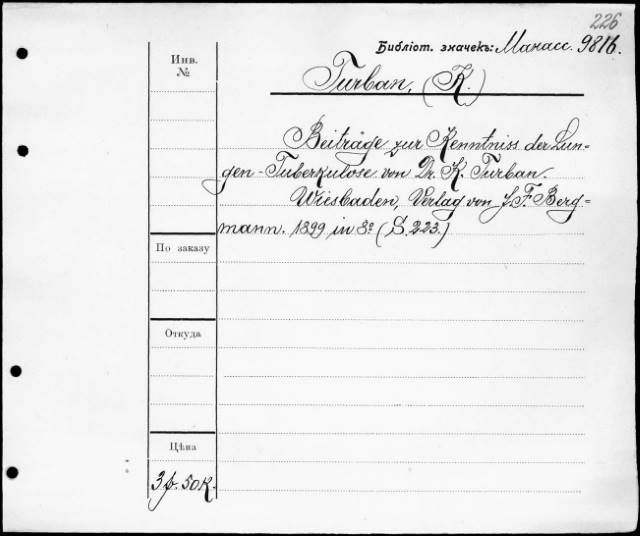 226
Библіот. значекъ: Манасс. 9816.
Инв.
№
Turban, (K.)
Beiträge zur Kenntniss der Lun-
gen-Tuberkulose von Dr. K. Turban.
Wiesbaden, Verlag von J. F. Berg-
mann. 1899 in 8º (S. 223.)
По заказу
Откуда
Цѣна
3 р. 50 к.